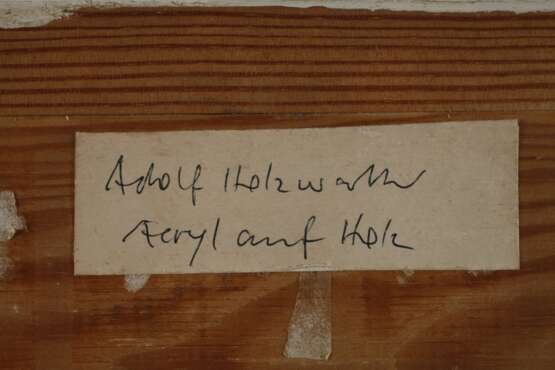 Adolf Holzwarth
Acryl auf Holz